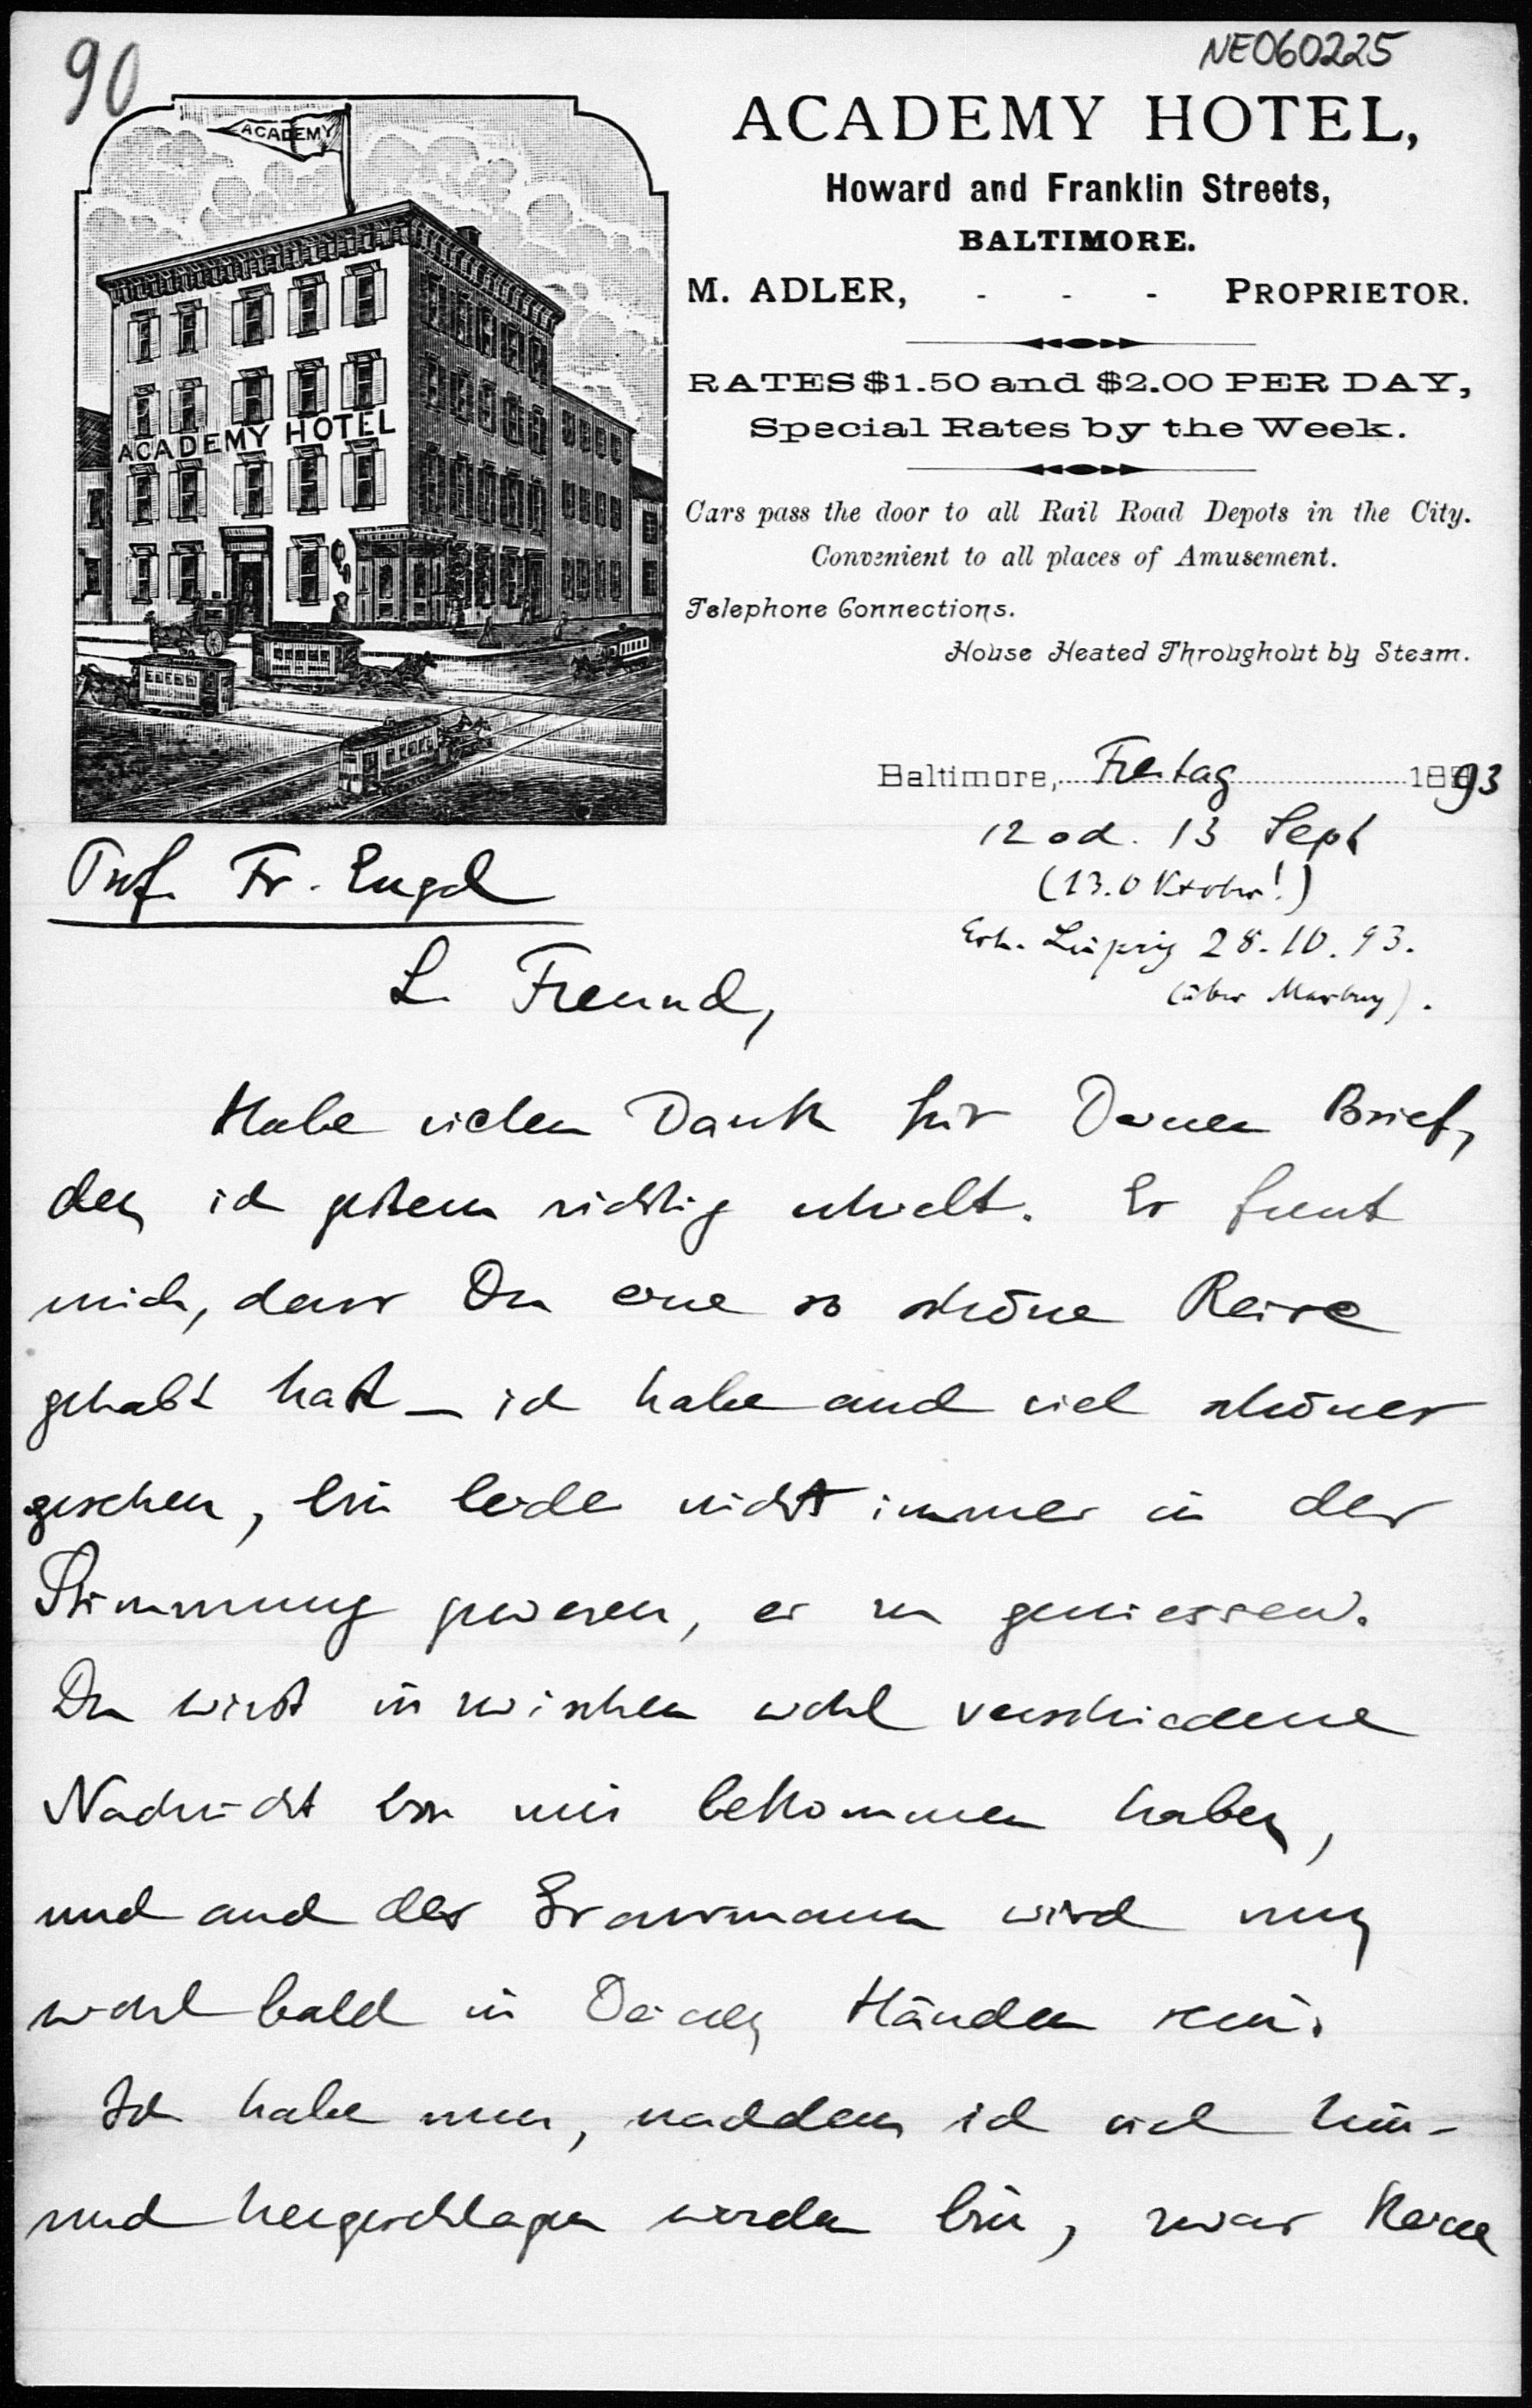 90
NE060225
ACADEMY
ACADEMY HOTEL
ACADEMY HOTEL,
Howard and Franklin Streets,
BALTIMORE.
M. ADLER, - - - PROPRIETOR.
RATES $1.50 and $2.00 PER DAY,
Special Rates by the Week.
Cars pass the door to all Rail Road Depots in the City.
Convenient to all places of Amusement.
Telephone Connections.
House Heated Throughout by Steam.
Baltimore, Freitag 1893
12 od. 13 Sept
(13. Oktober!)
Erh. Leipzig 28.10.93.
(über Marburg).
Prof. Fr. Engel
L. Freund,
Habe vielen Dank für Deinen Brief,
den ich gestern richtig erhielt. Es freut
mich, dass Du eine so schöne Reise
gehabt hast – ich habe auch viel schönes
gesehen, bin leider nicht immer in der
Stimmung gewesen, es zu geniessen.
Du wirst inzwischen wohl verschiedene
Nachricht von mir bekommen haben,
und auch der Grassmann wird nun
wohl bald in Deinen Händen sein.
Ich habe nun, nachdem ich viel hin-
und hergeschlagen worden bin, zwar keine